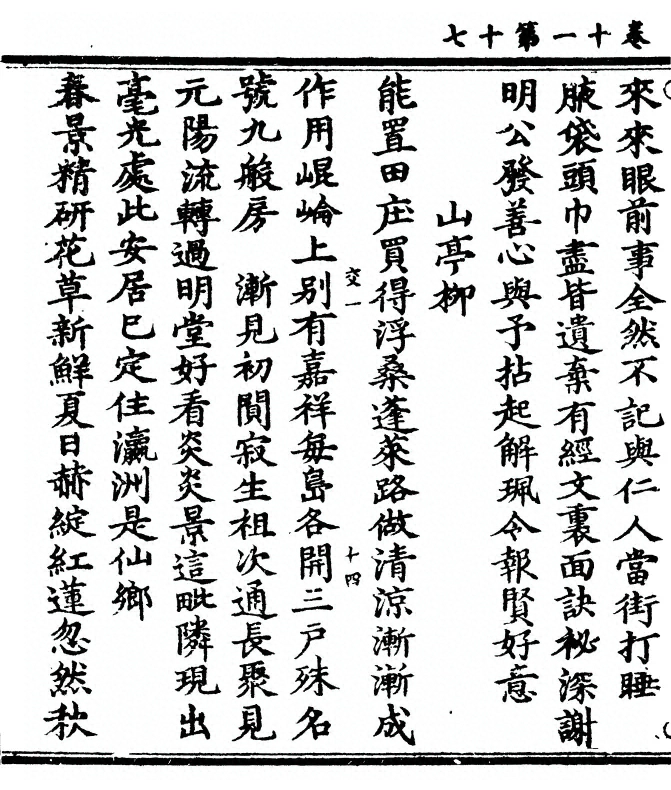 卷十一第十七
來來眼前事全然不記與仁人當街打睡
腋袋頭巾盡皆遺棄有經文裏面訣祕深謝
明公發善心與予拈起解珮令報賢好意
山亭柳
能置田庄買得浮桑蓬萊路做清涼漸漸成
交一
十四
作用崐崘上別有嘉祥每島各開三戶殊名
號九般房　漸見初閴寂生祖次通長聚見
元陽流轉過明堂好看炎炎景這毗隣現出
毫光處此安居巳定住瀛洲是仙鄉
春景精研花草新鮮夏日赫綻紅蓮忽然秋